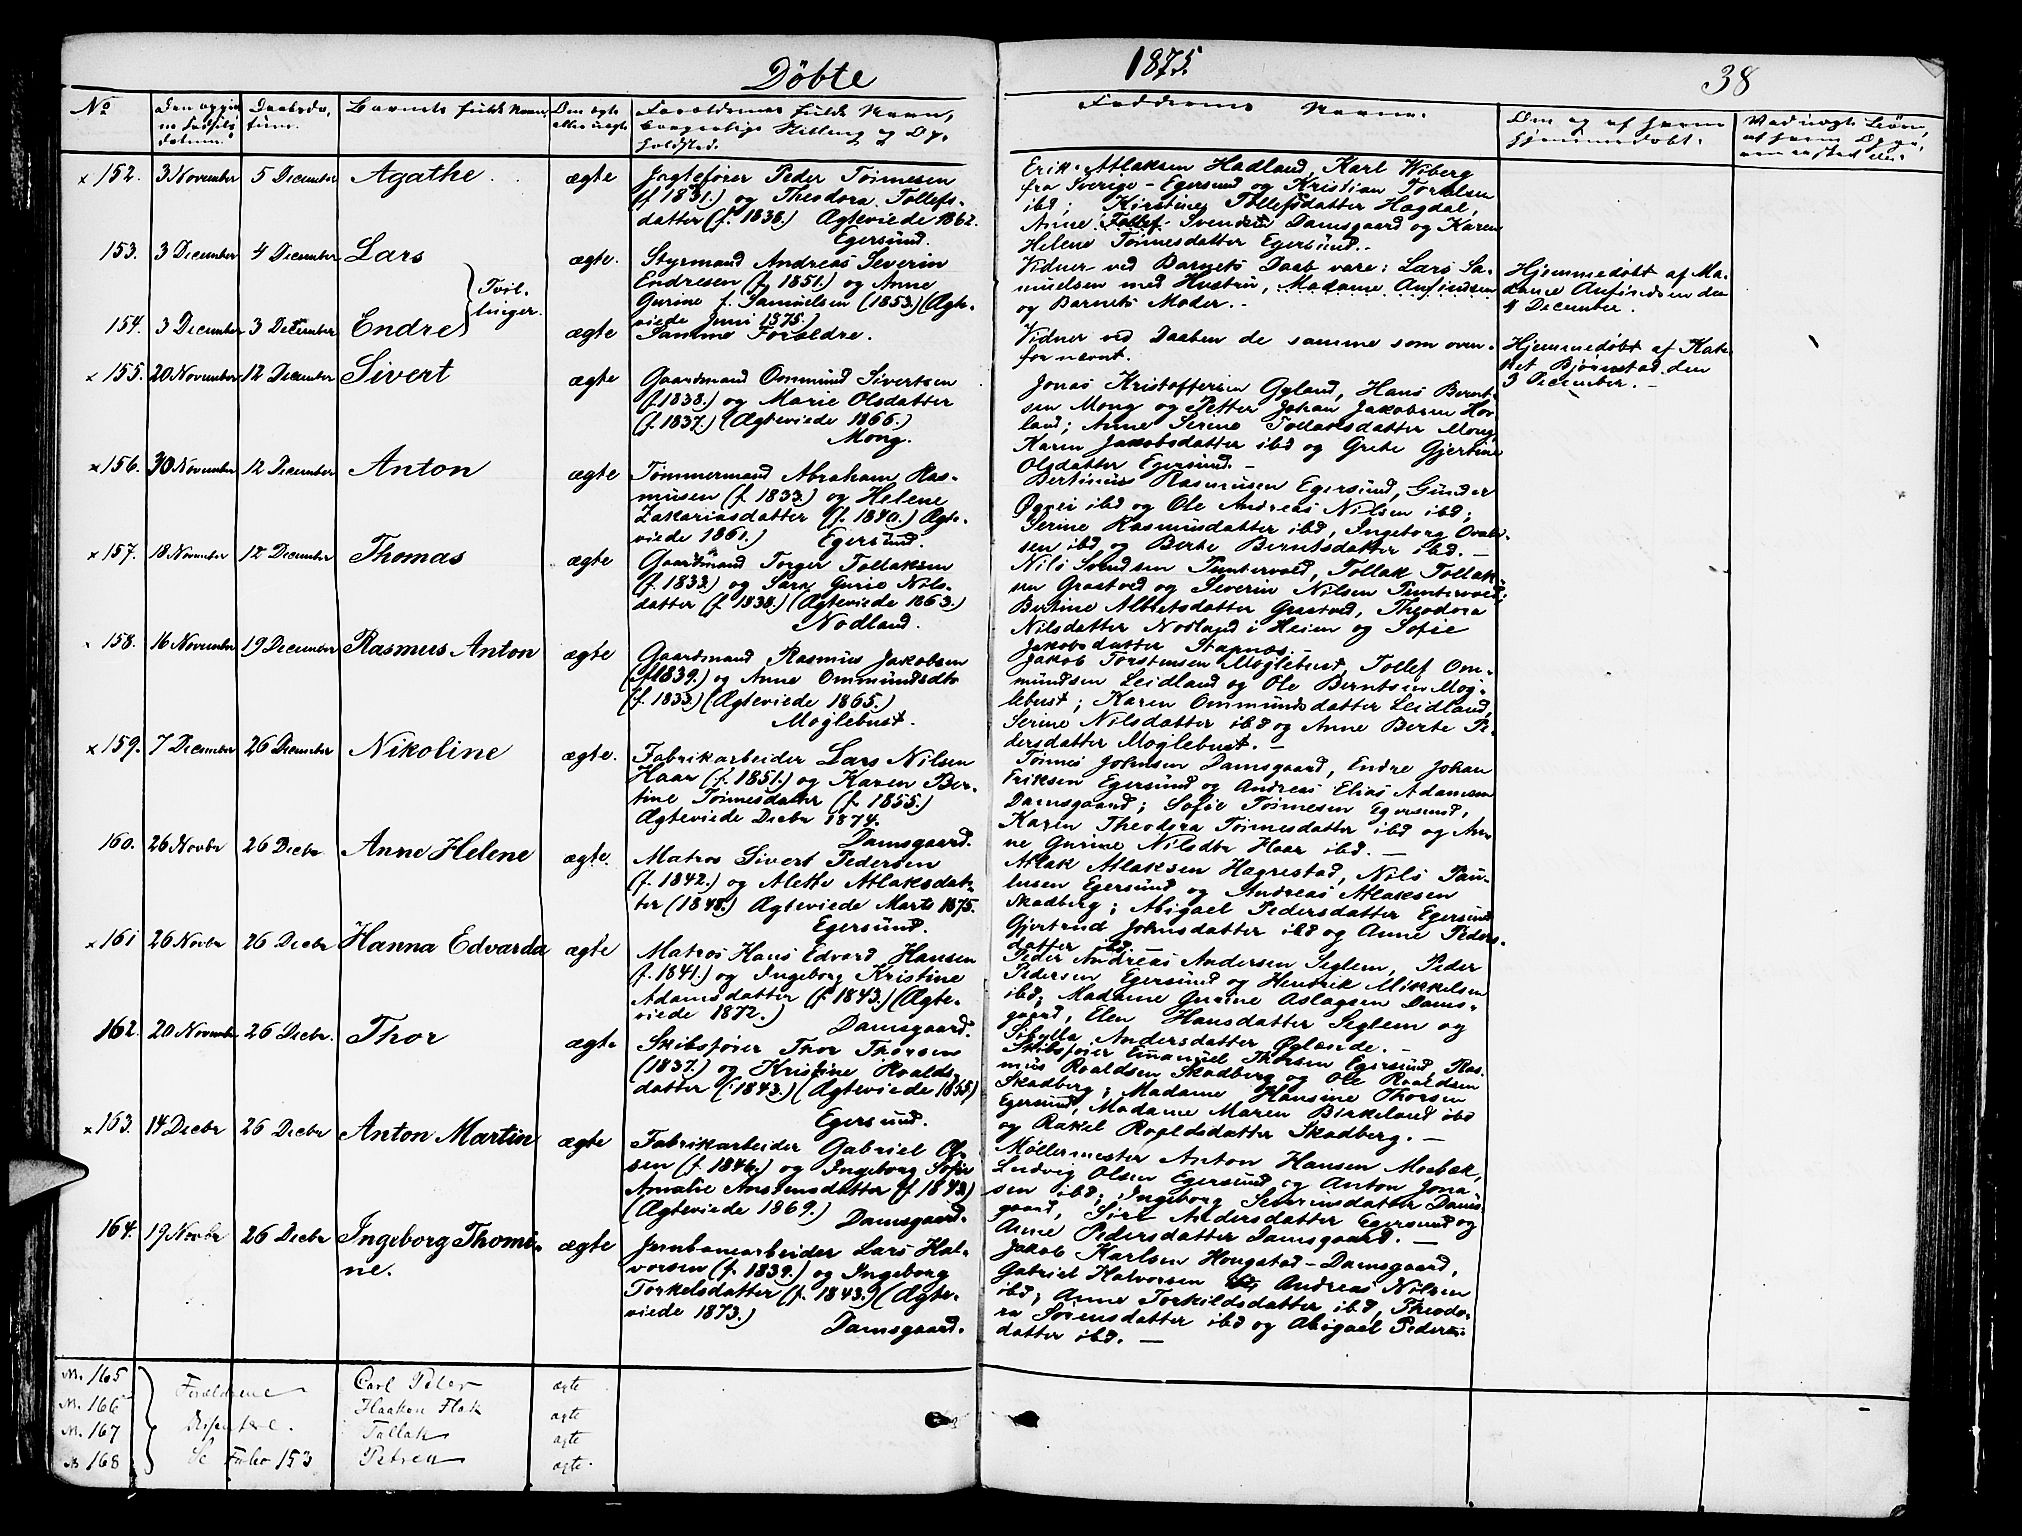 Döbte 1875. 38
No
Den opgiv-
ne Fødsels-
datum.
Daabsda-
tum.
Barnets fulde Navn.
Om ægte
eller uægte
Forældrenes fulde Navn,
borgerlige Stilling og Op-
holdsted.
Faddernes Navne.
Om og af hvem
hjemmedøbt.
Ved uægte Børn,
x 152. 3 November 5 December Agathe. ægte
Jagtefører Peder Tönnesen
(f 1831.) og Theodora Tollefs-
datter (f. 1838.) Ægteviede 1862.
Egersund.
Erik Atlaksen Hadland, Karl Wiberg
fra Sverige - Egersund og Kristian Torelsen
ibd; Kirstine Tollefsdatter Hægdal,
Anne Tollef- Svendsd Damsgaard og Karen
Helene Tönnesdatter Egersund.
153. 3 December 4 December Lars ægte.
Styrmand Andreas Severin
Endresen (f 1851.) og Anne
Gurine f. Samuelsen (1853.) (Ægte-
viede Juni 1875.)
Vidner ved Barnets Daab vare: Lars Sa-
muelsen med Hustru, Madame Anfindsen
og Barnets Moder. -
Hjemmedøbt af Ma-
dame Anfindsen den
4 December.
Tvil-
linger.
154. 3 December 3 December Endre ægte
Samme Forældre.
Vidner ved Daaben de samme som oven-
for nævnt.
Hjemmedøbt af Kate-
ket Bjørnstad den
3 December. -
x 155. 20 November 12 December Sivert ægte
Gaardmand Ommund Sivertsen
(f. 1838.) og Marie Olsdatter
(f. 1837.) (Ægteviede 1866.)
Mong.
Jonas Kristoffersen Gyland, Hans Bernt-
sen Mong og Petter Johan Jakobsen Hov-
land; Anne Serine Tollaksdatter Mong,
Karen Jakobsdatter ibd og Grete Gjertine
Olsdatter Egersund. -
x 156. 30 November 12 December Anton ægte
Tömmermand Abraham Ras-
musen (f. 1833.) og Helene
Zakariasdatter (f. 1840.) Ægte-
viede 1861.) Egersund.
Bertinius Rasmusen Egersund, Gunder
ibd og Ole Andreas Nilsen ibd;
Serine Rasmusdatter ibd, Ingeborg
sen ibd og Berte Berntsdatter ibd. -
x 157. 18 November 12 December Thomas ægte
Gaardmand Torger Tollaksen
(f. 1833.) og Sara Gurie Nils-
datter (f. 1838.) (Ægteviede 1863.)
Nodland.
Nils Svendsen Puntervold, Tollak Tollak-
sen Grastved og Severin Nilsen Puntervold;
Bertine Albretsdatter Grastved, Theodora
Nilsdatter Nodland i Heien og Sofie
Jakobsdatter Stapnæs. -
158. 16 November 19 December Rasmus Anton ægte
Gaardmand Rasmus Jakobsen
(f. 1839.) og Anne Ommundsdtr
(f. 1833.) (Ægteviede 1865.)
Moglebust.
Jakob Torstensen Moglebust, Tollef Om-
mundsen Leidland og Ole Berntsen Mog-
lebust; Karen Ommundsdatter Leidland,
Serine Nilsdatter ibd og Anne Berte Pe-
dersdatter Moglebust. -
x 159. 7 December 26 December Nikoline ægte.
Fabrikarbeider Lars Nilsen
Haar (f. 1851.) og Karen Ber-
tine Tönnesdatter (f. 1855.)
Ægteviede Decbr 1874.
Damsgaard.
Tönnes Johnsen Damsgaard, Endre Johan
Eriksen Egersund og Andreas Elias Adamsen
Damsgaard; Sofie Tönnesen Egersund,
Karen Theodora Tönnesdatter ibd og An-
ne Gurine Nilsdtr Haar ibd. -
160. 26 Novbr 26 Decbr Anne Helene ægte.
Matros Sivert Pedersen
(f. 1842.) og Alette Atlaksdat-
ter (1848.) Ægteviede Marts 1875.
Egersund.
Atlak Atlaksen Hægrestad, Nils Pau-
lusen Egersund og Andreas Atlaksen
Skadberg; Abigael Pedersdatter Egersund
Gjertrud Johnsdatter ibd og Anne Peders-
datter ibd.
x 161 26 Novbr 26 Decbr Hanna Edvarda ægte
Matros Hans Edvard Hansen
(f. 1841.) og Ingeborg Kristine
Adamsdatter (f. 1843.) (Ægte-
viede 1872.) Damsgaard.
Peder Andreas Andersen Seglem, Peder
Pedersen Egersund og Hendrik Mikkelsen
ibd; Madame Gurine Aslagsen Dams-
gaard, Elen Hansdatter Seglem og
Sibylla Andersdatter Øglænde. -
162. 20 November 26 Decbr. Thor ægte
Skibsfører Thor Thorsen
(1837.) og Kristine Roalds-
datter (1843.) (Ægteviede 1865)
Egersund.
Skibsfører Emanuel Thorsen Egersund, Ras-
mus Roaldsen Skadberg og Ole Roaldsen
Skadberg; Madame Hansine Thorsen
Egersund, Madame Maren Birkeland ibd
og Rakel Roaldsdatter Skadberg. -
x 163. 14 Decbr 26 Decbr Anton Martin ægte
Fabrikarbeider Gabriel Ol-
sen (f. 1846.) og Ingeborg Sofie
Amalie Anstensdatter (f. 1842.)
(Ægteviede 1869.) Damsgaard.
Møllermester Anton Hansen Mosbæk,
Ludvig Olsen Egersund og Anton Jona-
sen ibd; Ingeborg Severinsdatter Dams-
gaard, Siri Andersdatter Egersund og
Anne Pedersdatter Damsgaard. -
164. 19 Novbr 26 Decbr Ingeborg Thomi-
ne. ægte
Jernbanearbeider Lars Hal-
vorsen (f. 1839.) og Ingeborg
Torkelsdatter (f. 1843.) (Ægte-
viede 1873.)
Damsgaard.
Jakob Karlsen Hougstad - Damsgaard,
Gabriel Halvorsen Andreas Nilsen
ibd; Anne Torkildsdatter ibd, Theodo-
ra Sörensdatter ibd og Abigael Peders-
datter ibd. -
N. 165 Carl Peder ægte
N. 166 Forældrene Haaken Flak ægte
N. 167 Tallak ægte
N. 168 Se Folio 153 Petrea ægte.